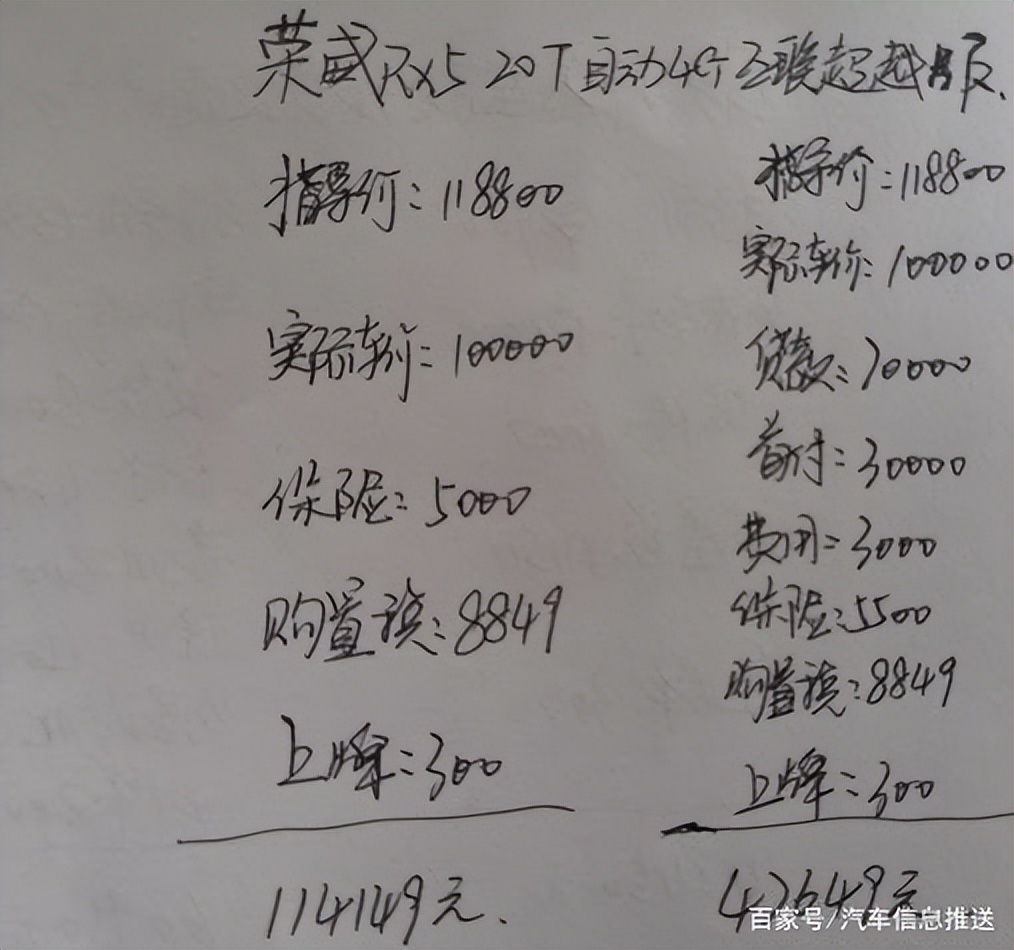 荣威RX5 20T自动4G互联超越版.
指导价:118800
实际车价:100000
保险:5000
购置税:8849
上牌:300
114149元.
指导价:118800
实际车价:100000
贷款:70000
首付:30000
费用:3000
保险:5500
购置税:8849
上牌:300
47649元
百家号/汽车信息推送